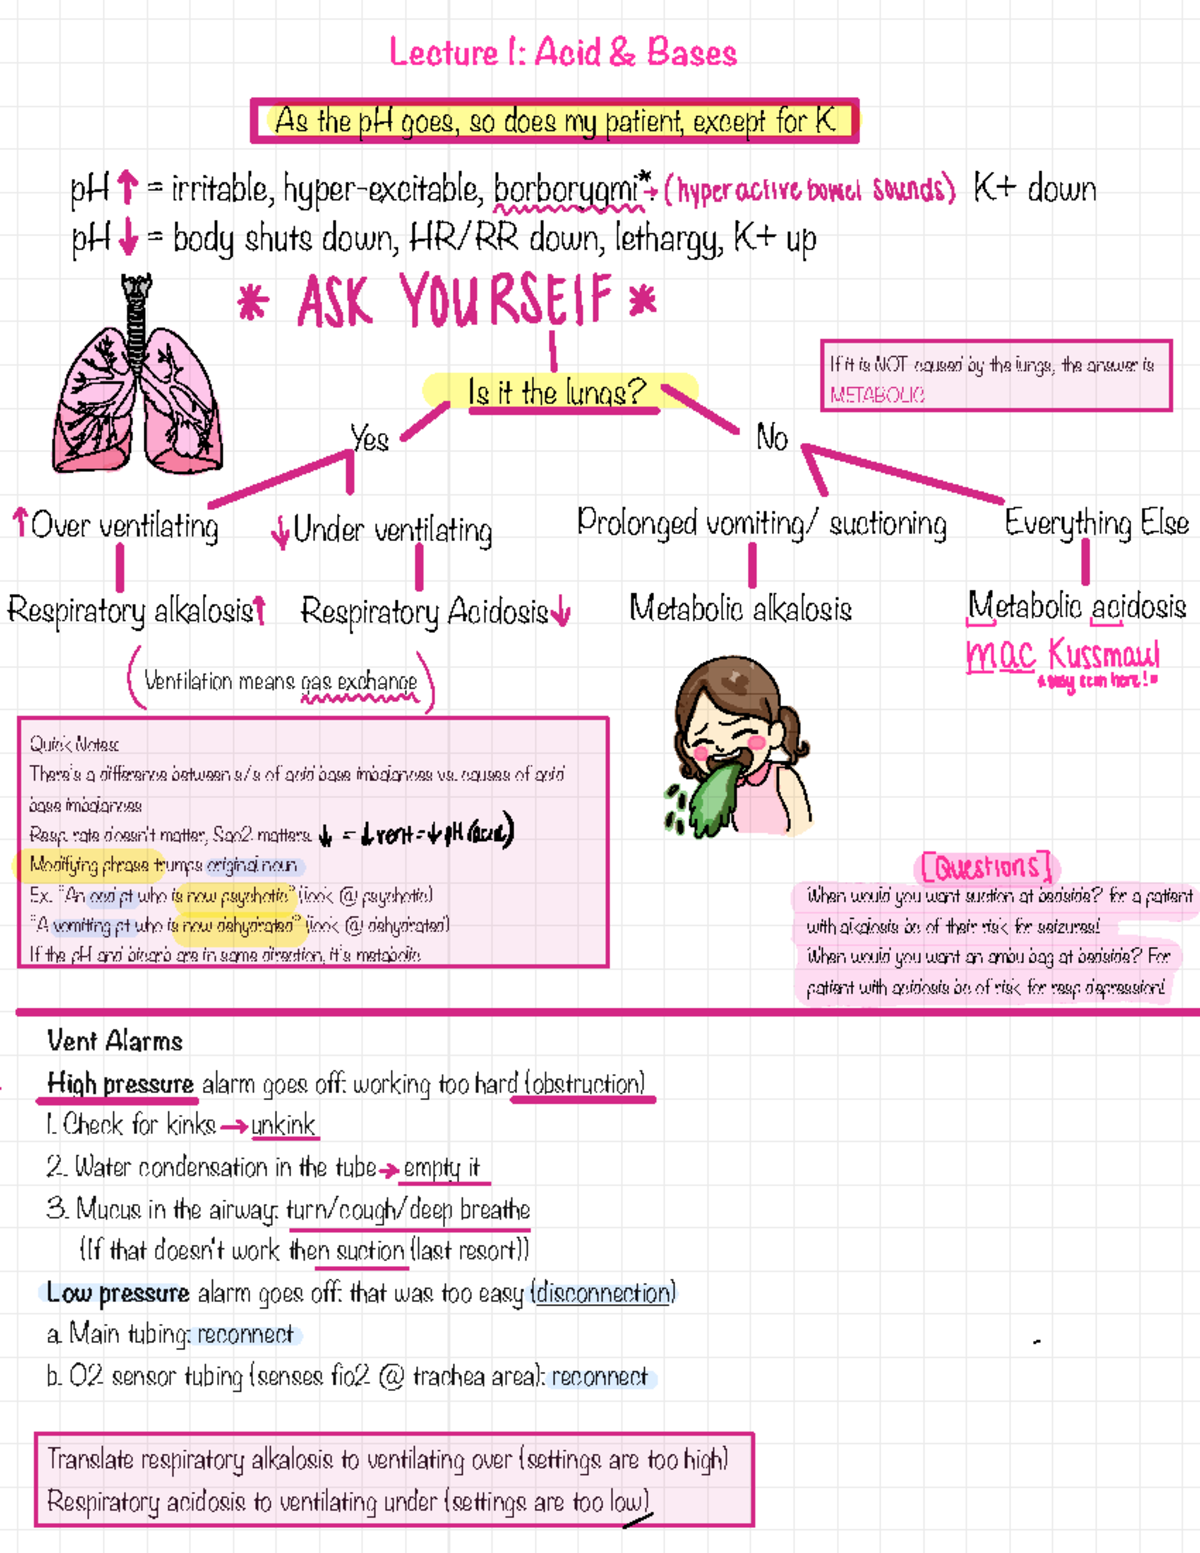 Lecture 1: Acid & Bases
As the pH goes, so does my patient, except for K
pH ↑ = irritable, hyper-excitable, borborygmi* → (hyperactive bowel sounds) K+ down
pH ↓ = body shuts down, HR/RR down, lethargy, K+ up
* ASK YOURSELF *
If it is NOT caused by the lungs, the answer is
METABOLIC
Is it the lungs?
Yes
No
↑Over ventilating
↓Under ventilating
Prolonged vomiting/ suctioning
Everything Else
Respiratory alkalosis↑
Respiratory Acidosis↓
Metabolic alkalosis
Metabolic acidosis
mac Kussmaul
(Ventilation means gas exchange)
Quick Notes:
There's a difference between s/s of acid base imbalances vs. causes of acid
base imbalances
Resp. rate doesn't matter, Sao2 matters. ↓ = ↓vent = ↓pH (acid)
Modifying phrase trumps original noun
Ex. "An ood pt who is now psychotic" (look @ psychotic)
"A vomiting pt who is now dehydrated" (look @ dehydrated)
If the pH and bicarb are in same direction, it's metabolic
[Questions]
When would you want suction at bedside? for a patient
with alkalosis bc of their risk for seizures!
When would you want an ambu bag at bedside? For
patient with acidosis bc of risk for resp depression!
Vent Alarms
High pressure alarm goes off: working too hard (obstruction)
1. Check for kinks → unkink
2. Water condensation in the tube → empty it
3. Mucus in the airway: turn/cough/deep breathe
(If that doesn't work then suction (last resort))
Low pressure alarm goes off: that was too easy (disconnection)
a. Main tubing: reconnect
b. O2 sensor tubing (senses fio2 @ trachea area): reconnect
Translate respiratory alkalosis to ventilating over (settings are too high)
Respiratory acidosis to ventilating under (settings are too low)